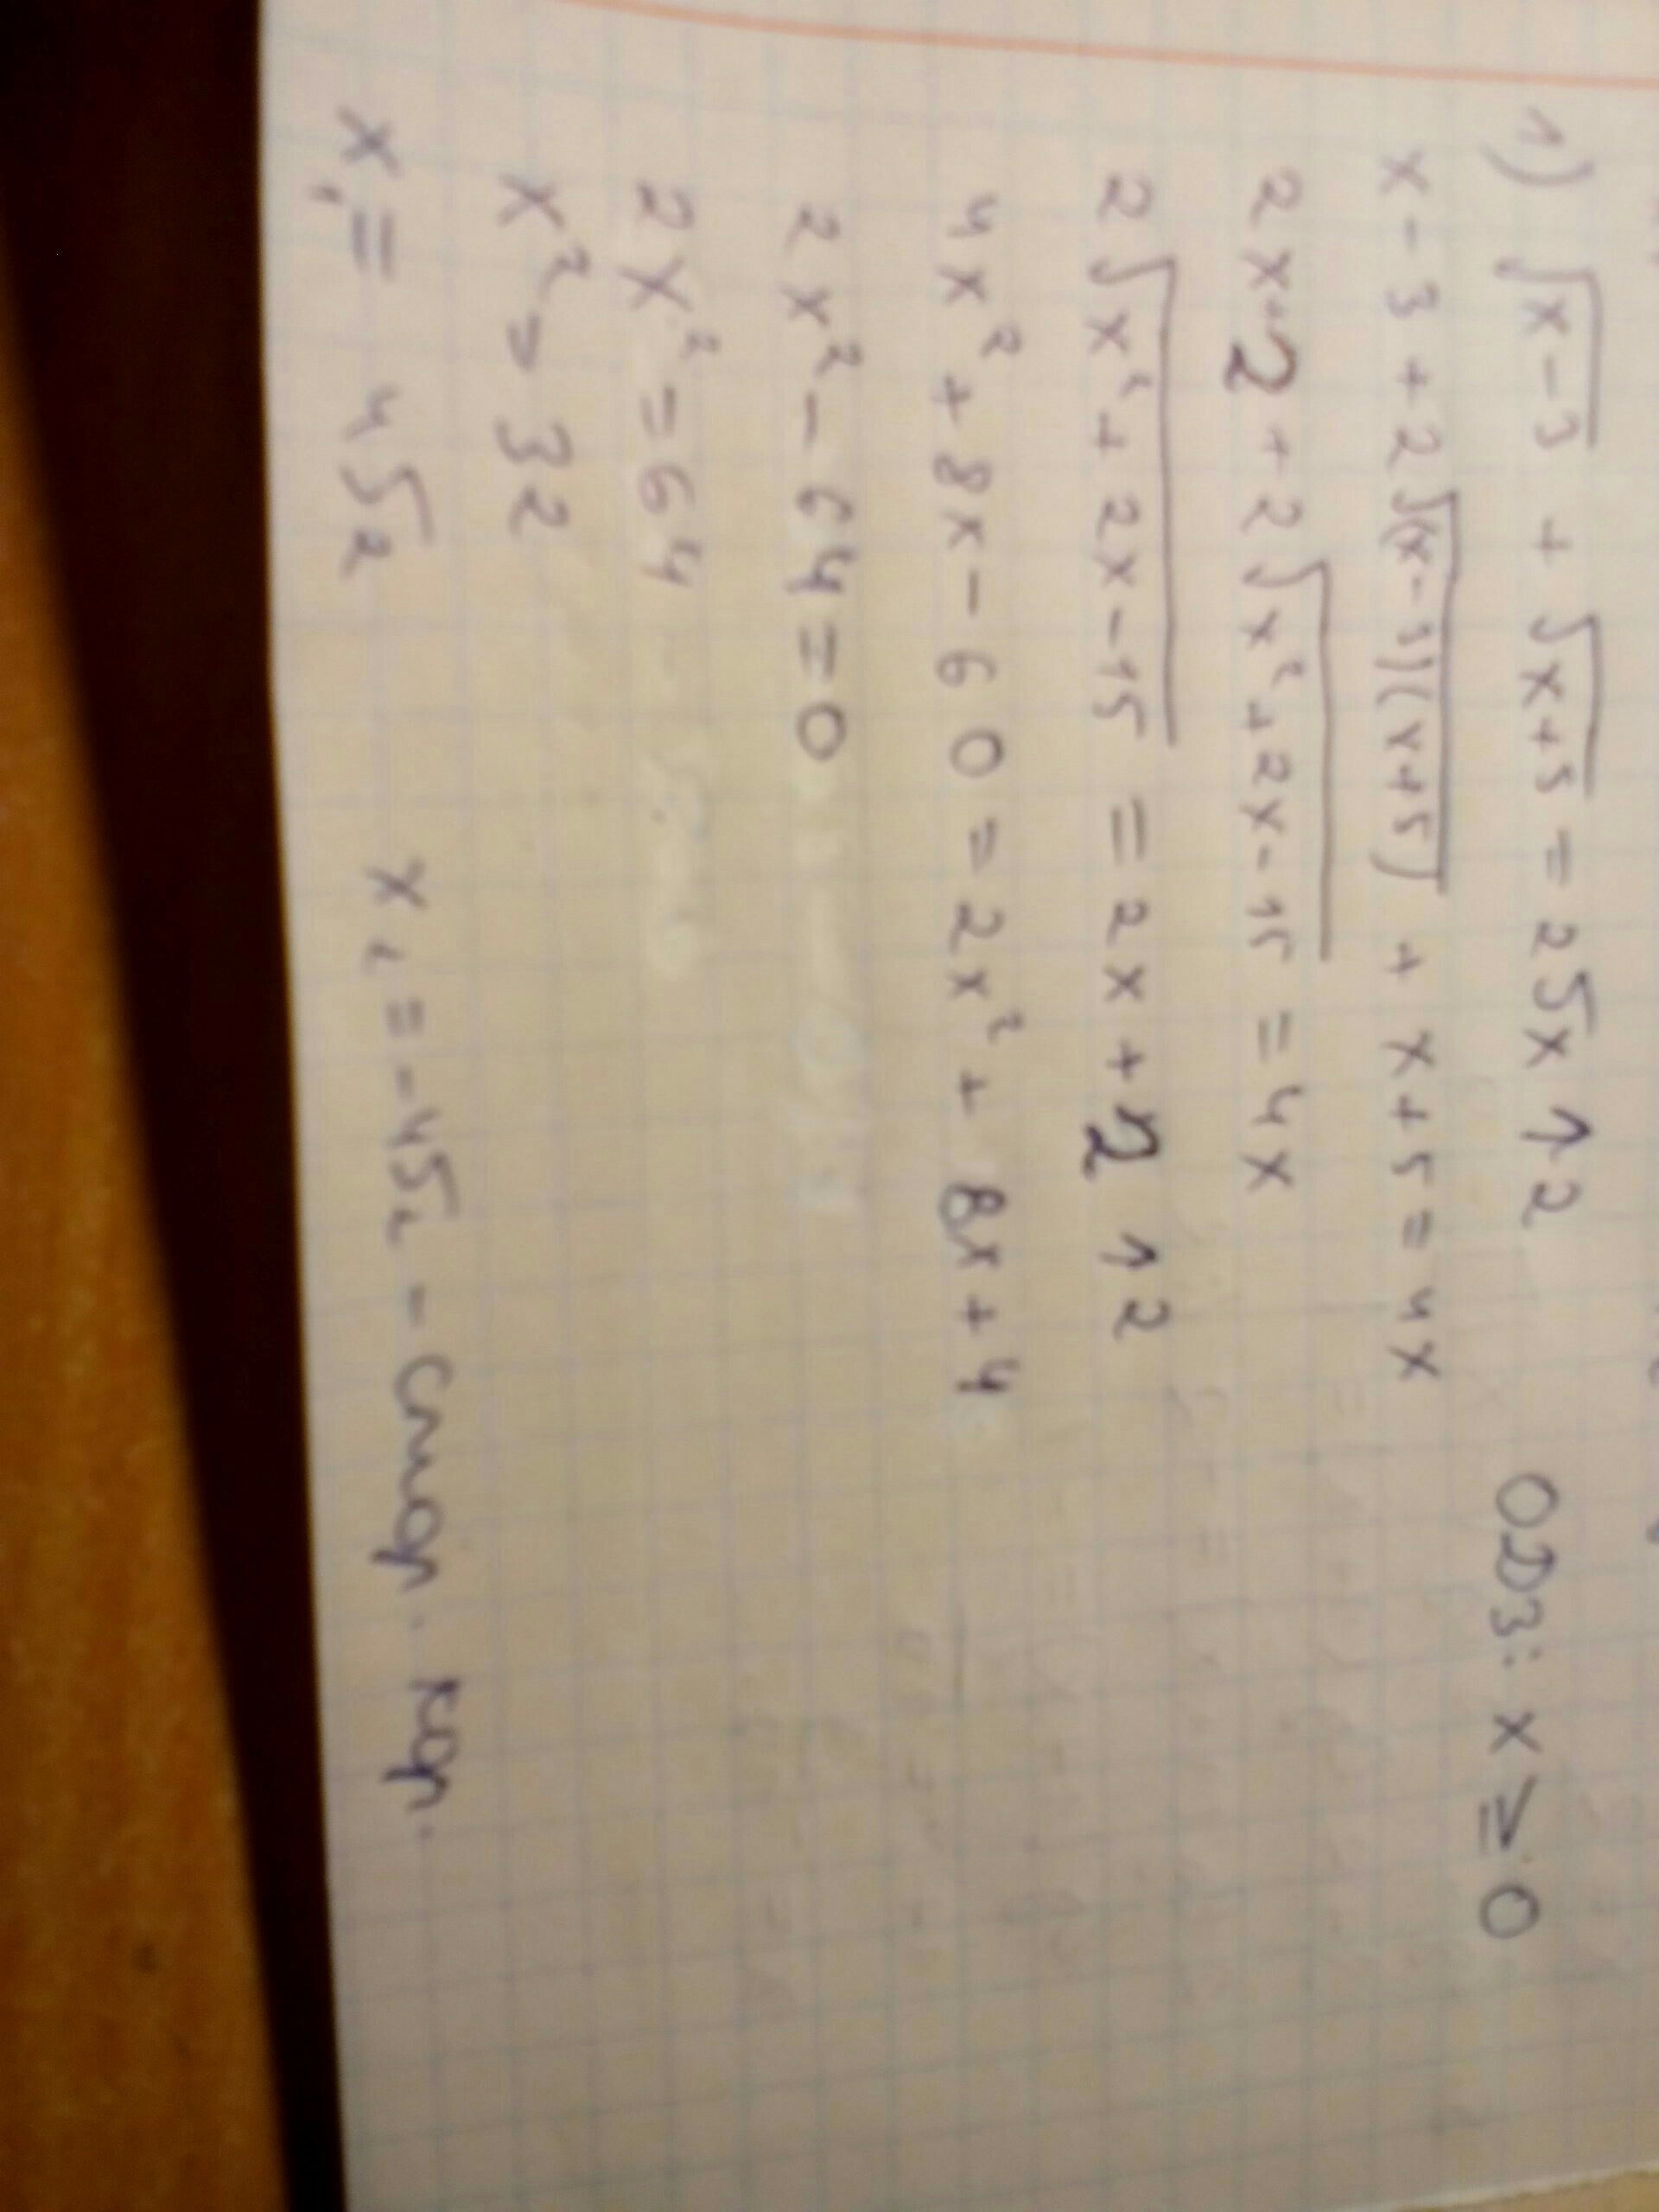 1) √x-3 + √x+5 = 2√x ↑2 ОДЗ: x ≥ 0
x - 3 + 2√(x-3)(x+5) + x + 5 = 4x
2x+2 + 2√x²+2x-15 = 4x
2√x²+2x-15 = 2x+2 ↑2
4x² + 8x - 60 = 2x² + 8x + 4
2x² - 64 = 0
2x² = 64
x² = 32
x₁ = 4√2 x₂ = -4√2 - стор. кор.